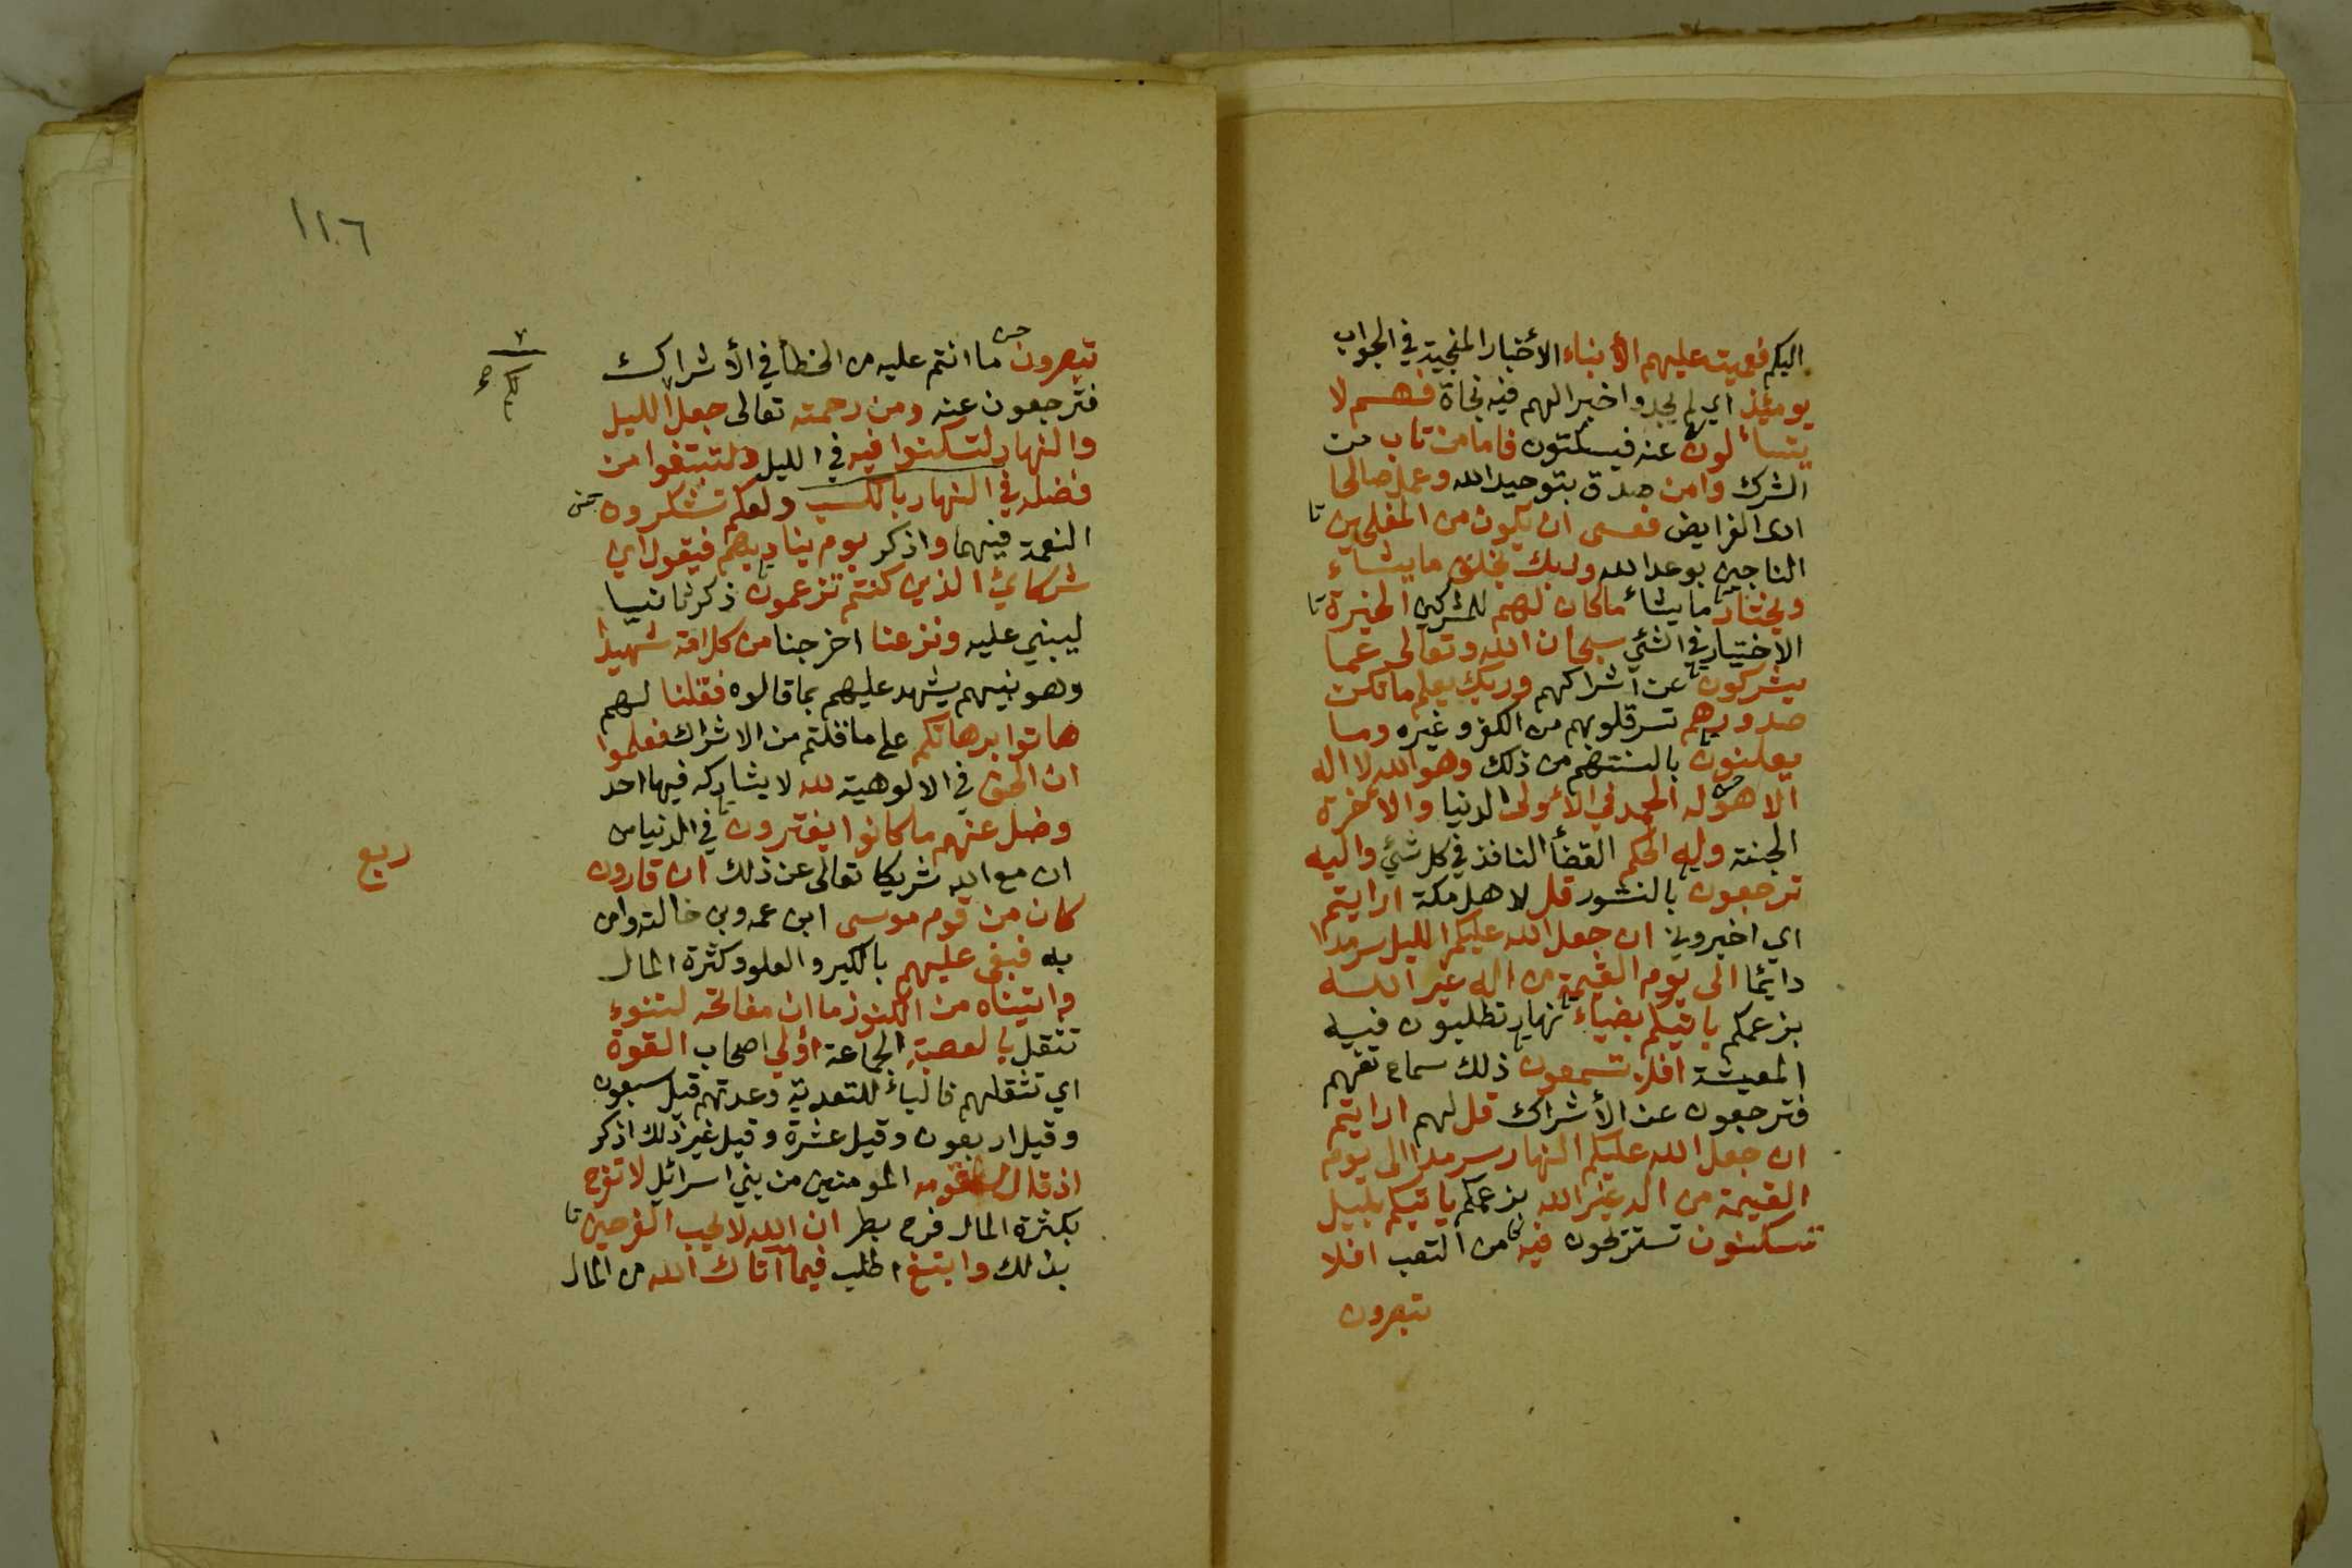 اليكم فعميت عليهم الأنباء الأخبار المنجية في الجواب
يومئذ اي لم يجدوا خبرا لهم فيه نجاة فهم لا
يتسألون عنه فيسكتون فاما من تاب من
الشرك وامن صدق بتوحيد الله وعمل صالحا
ادى الفرايض فعسى ان يكون من المفلحين
الناجين بوعد الله وربك يخلق ما يشاء
ويختار ما يشأ ما كان لهم للمشركين الخيرة
الاختيار في الشئ سبحان الله وتعالى عما
يشركون عن اشراكهم وربك يعلم ما تكن
صدورهم تسر قلوبهم من الكفر وغيره وما
يعلنون بالسنتهم من ذلك وهو الله لا اله
الا هو له الحمد في الأولى الدنيا والاخرة
الجنة وله الحكم القضأ النافذ في كل شئ واليه
ترجعون بالنشور قل لاهل مكة ارايتم
اي اخبروني ان جعل الله عليكم الليل سرمدا
دائما الى يوم القيمة من اله غير الله
بزعمكم ياتيكم بضياء نهار تطلبون فيه
المعيشة افلا تسمعون ذلك سماع تفهم
فترجعون عن الأشراك قل لهم ارايتم
ان جعل الله عليكم النهار سرمدا الى يوم
القيمة من اله غير الله بزعمكم ياتيكم بليل
تسكنون تستريحون فيه من التعب افلا
تبصرون
١١٦
تبصرون ما انتم عليه من الخطأ في الأشراك
فترجعون عنه ومن رحمته تعالى جعل لكم الليل
والنهار لتسكنوا فيه في الليل ولتبتغوا من
فضله في النهار بالكسب ولعلكم تشكرون
النعمة فيهما واذكر يوم يناديهم فيقول اين
شركائ الذين كنتم تزعمون ذكر ثانيا
ليبني عليه ونزعنا اخرجنا من كل امة شهيدا
وهو نبيهم يشهد عليهم بما قالوه فقلنا لهم
هاتوا برهانكم على ما قلتم من الاشراك فعلموا
ان الحق في الالوهية لله لا يشاركه فيها احد
وضل عنهم ما كانوا يفترون في الدنيا من
ان مع الله شريكا تعالى عن ذلك ان قارون
ربع
كان من قوم موسى ابن عمه وبن خالته وامن
به فبغى عليهم بالكبر والعلو وكثرة المال
واتيناه من الكنوز ما ان مفاتحه لتنوء
تثقل بالعصبة الجماعة اولي اصحاب القوة
اي تثقلهم فالباء للتعدية وعدتهم قيل سبعون
وقيل اربعون وقيل عشرة وقيل غير ذلك اذكر
اذ قال له قومه المومنين من بني اسرائيل لا تفرح
بكثرة المال فرح بطر ان الله لا يحب الفرحين
بذلك وابتغ اطلب فيما آتاك الله من المال